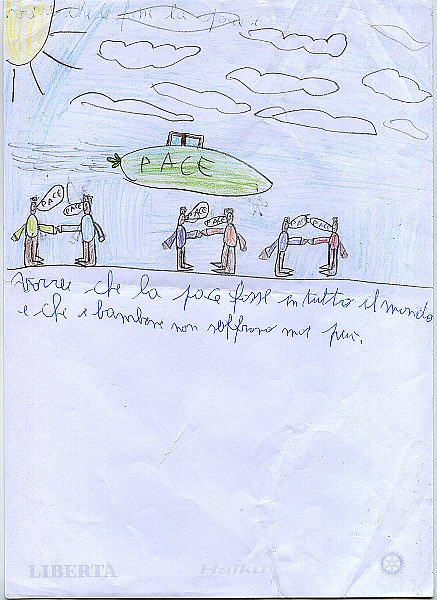 che fosse la pace
PACE
PACE PACE
PACE PACE
PACE PACE
Vorrei che la pace fosse in tutto il mondo
e che i bambini non soffrano mai più.
LIBERTÀ Haiku